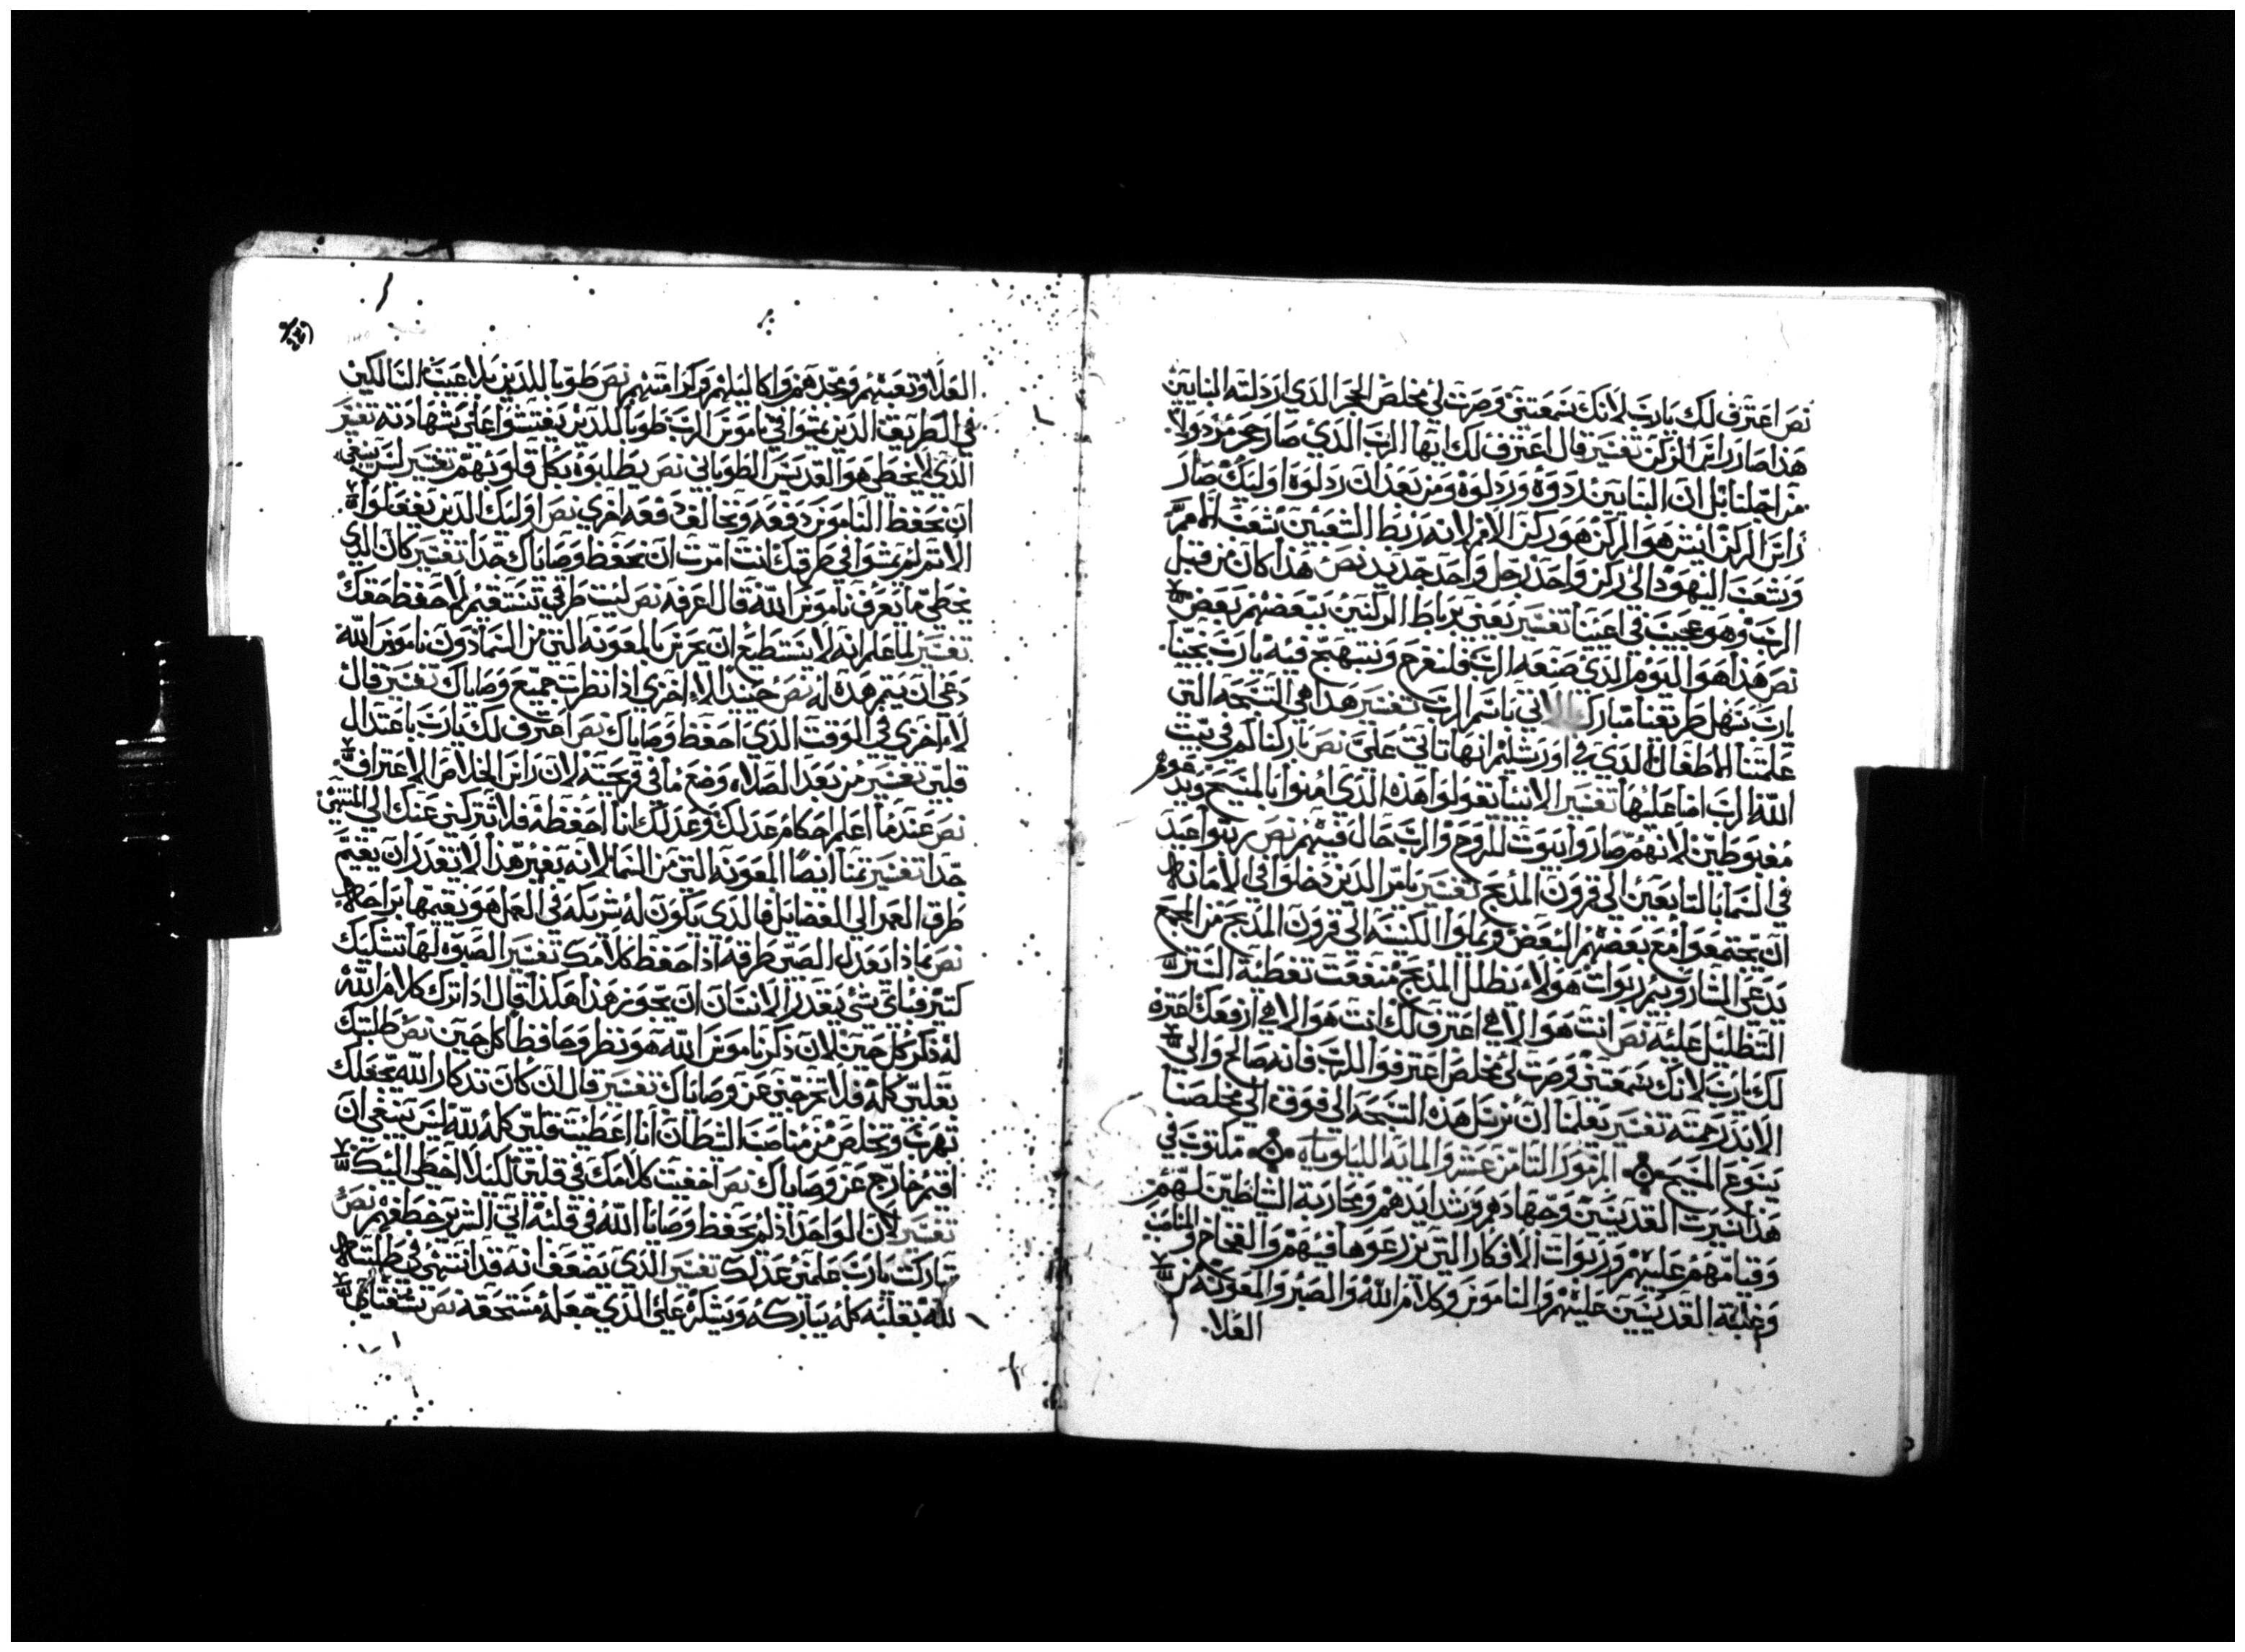 نص اعترف لك يارب لانك سمعتني وصرت لي مخلص الحجر الذي اردلته البنايين
هذا صار راس الركن تفسير قال اعترف لك ايها الرب الذي صار حجر مردولا
من اجلنا بل ان البنايين ردوه وردلوه ومن بعد ان ردلوه اوليك صار
راس الركن ايش هو الركن هو ركن الامم لانه ربط الشعبين شعب الامم
وشعب اليهود الى ركن واحد رجل واحد جديد نص هذا كان من قبل
الرب وهو عجيب في اعيننا تفسير يعني برباط الركنين ببعضهم بعض
نص هذا هو اليوم الذي صنعه الرب فلنفرح ونبتهج فيه يارب نجينا
يارب سهل طريقنا مبارك الاتي باسم الرب تفسير هذا هي التسبحه التي
علمتنا الاطفال الذي في اورشليم انها تاتي علي نص باركناكم في بيت
الله الرب اضا علينا تفسير الانبيا يقولوا هذه الذي امنوا بالمسيح ويدعوهم
مغبوطين لانهم صاروا بيوت للروح والرب حال فيهم نص رتبوا عيد
في السما بالتابعين الى قرون المذبح تفسير يامر الذين دخلوا في الامانه
ان يجتمعوا مع بعضهم البعض ويملوا الكنيسه الى قرون المذبح من الجمع
يدعي الشاروبيم ربوات هولاء يظلل المذبح منفعت تغطية الستر
التظليل عليه نص انت هو الاهي اعترف لك انت هو الاهي ارفعك اعترف
لك يارب لانك سمعتني وصرت لي مخلص اعترفوا للرب فانه صالح والي
الابد رحمته تفسير يعلمنا ان نرتل هذه التسبحه الى فوق الى مخلصنا
يسوع المسيح المزمور الثامن عشر والمايه الليلوياه مكتوب في
هذا سيرت القديسين وجهادهم وشدايدهم ومحاربة الشياطين لهم
وقيامهم عليهم وربوات الافكار التي يزرعوها فيهم والفخاخ والمناصب
وغلبة القديسين عليهم والناموس وكلام الله والصبر والمعونه من
العلا
العلا وتعبهم ومجدهم واكاليلهم وكرامتهم نص طوبا للذين بلا عيب السالكين
في الطريق الذين يمشوا في ناموس الرب طوبا للذين يفتشوا على شهادته تفسير
الذي لا يخطي هو القديس الطوباني نص يطلبوه بكل قلوبهم تفسير ليس ينبغي
ان نحفظ الناموس دفعه ونخالف دفعه اخري نص اوليك الذين يفعلوا
الاثم لم يمشوا في طرقك انت امرت ان نحفظ وصاياك جدا تفسير كان الذي
يخطي ما يعرف ناموس الله قال اعرفه نص ليت طرقي تستقيم لاحفظ حقك
تفسير لما علم انه لا يستطيع ان يحرس بالمعونه التي من السما دون ناموس الله
دعي ان يتم هذه له نص حينيد لا اخزي اذا نظرت جميع وصاياك تفسير قال
لا اخزي في الوقت الذي احفظ وصاياك نص اعترف لك يارب باعتدال
قلبي تفسير من بعد الصلاه وضع ما في قريحته لان راس الخلاص الاعتراف
نص عندما اعلم احكام عدلك وعدلك انا احفظه فلا تتركني عنك الي المنتهي
جدا تفسير تمنا ايضا المعونه التي من السما لانه بغير هذا لا تقدر ان يقيم
طرق العمر الي الفضايل فالذي يكون له شريكه في العمل هو يقيمها براحه
نص بماذا يعدل الصبي طرقه اذا حفظ كلامك تفسير الصبوه لها تشكيك
كتير فباي شي يقدر الانسان ان يجوز هذا هكذا قال اذا ترك كلام الله
له ذكر كل حين لان ذكر ناموس الله هو نظر وحافظا كل حين نص طلبتك
بقلبي كله فلا تخرجني عن وصاياك تفسير قال لان كان تدكار الله يجعلك
تهرب وتخلص من مناصبة الشيطان انا اعطيت قلبي كله لله ليس ينبغي ان
اقيم خارج عن وصاياك نص اخفيت كلامك في قلبي لكيلا اخطي اليك
تفسير لان الواحد اذا لم يحفظ وصايا الله في قلبه اتي الشرير خطفهم نص
تباركت يارب علمني عدلك تفسير الذي يضعف انه قد انتهي في طلبته
لله بقلبه كله يباركه ويشكره علي الذي جعله مستحقه نص بشفتاي